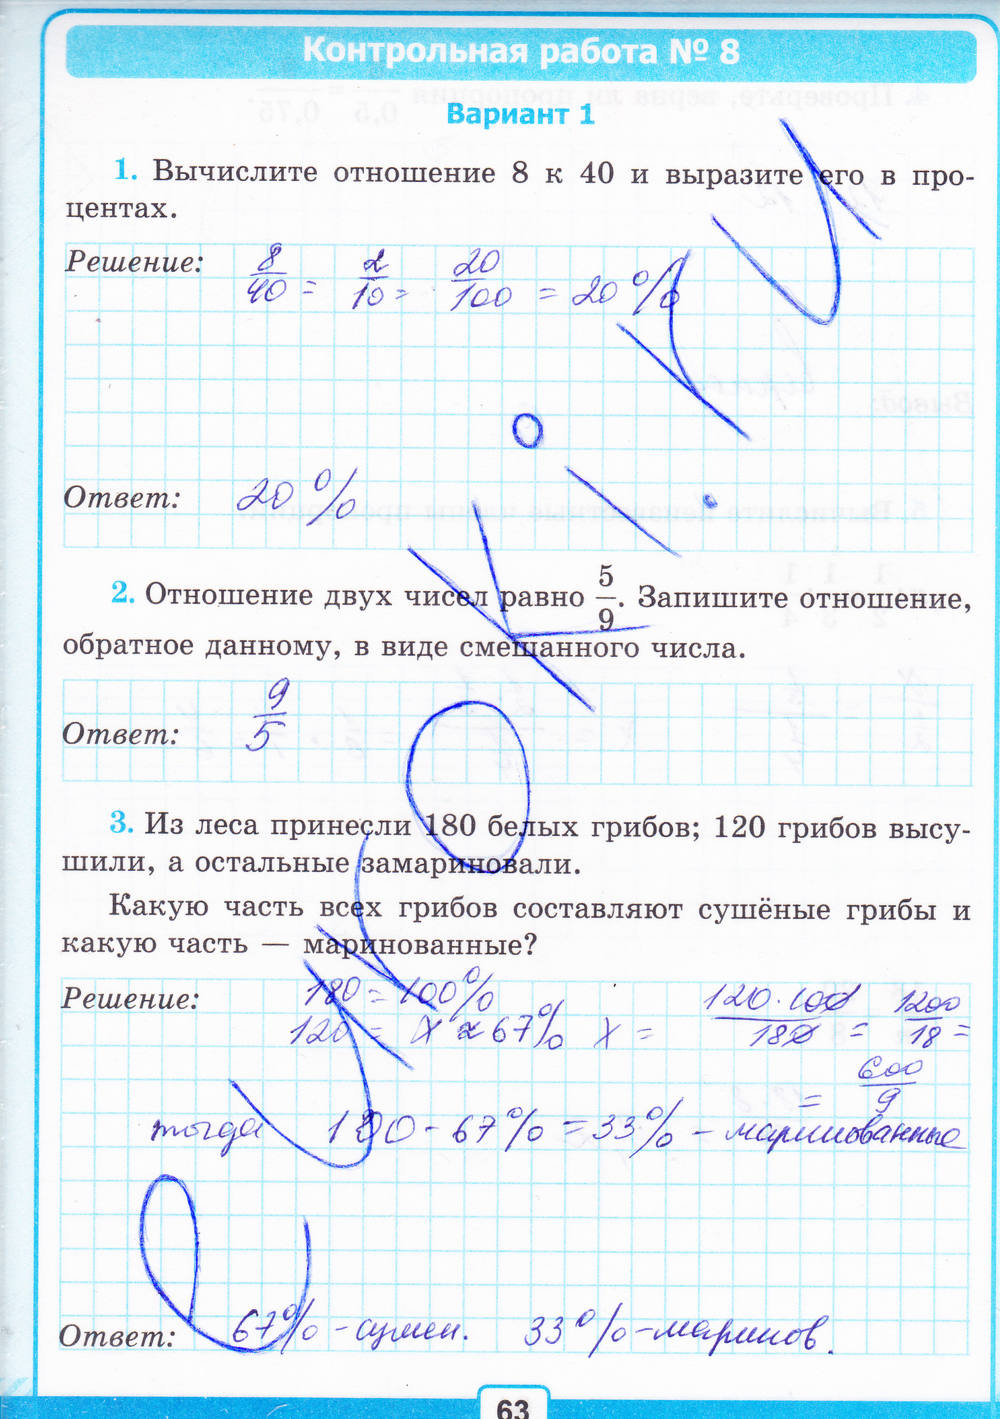 Контрольная работа № 8
Вариант 1
1. Вычислите отношение 8 к 40 и выразите его в про-
центах.
Решение: 8/40 = 2/10 = 20/100 = 20 %
Ответ: 20 %
2. Отношение двух чисел равно 5/9. Запишите отношение,
обратное данному, в виде смешанного числа.
Ответ: 9/5
3. Из леса принесли 180 белых грибов; 120 грибов высу-
шили, а остальные замариновали.
Какую часть всех грибов составляют сушёные грибы и
какую часть — маринованные?
Решение: 180 = 100%
120 = X ≈ 67% X = 120·100/180 = 1200/18 =
= 600/9
тогда 100 - 67% = 33% - маринованные
Ответ: 67% - сушен. 33% - маринов.
63